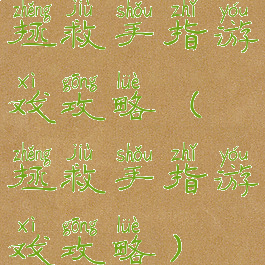 zhěng jiù shǒu zhǐ yóu
拯救手指游
xì gōng lüè
戏攻略（
zhěng jiù shǒu zhǐ yóu
拯救手指游
xì gōng lüè
戏攻略）